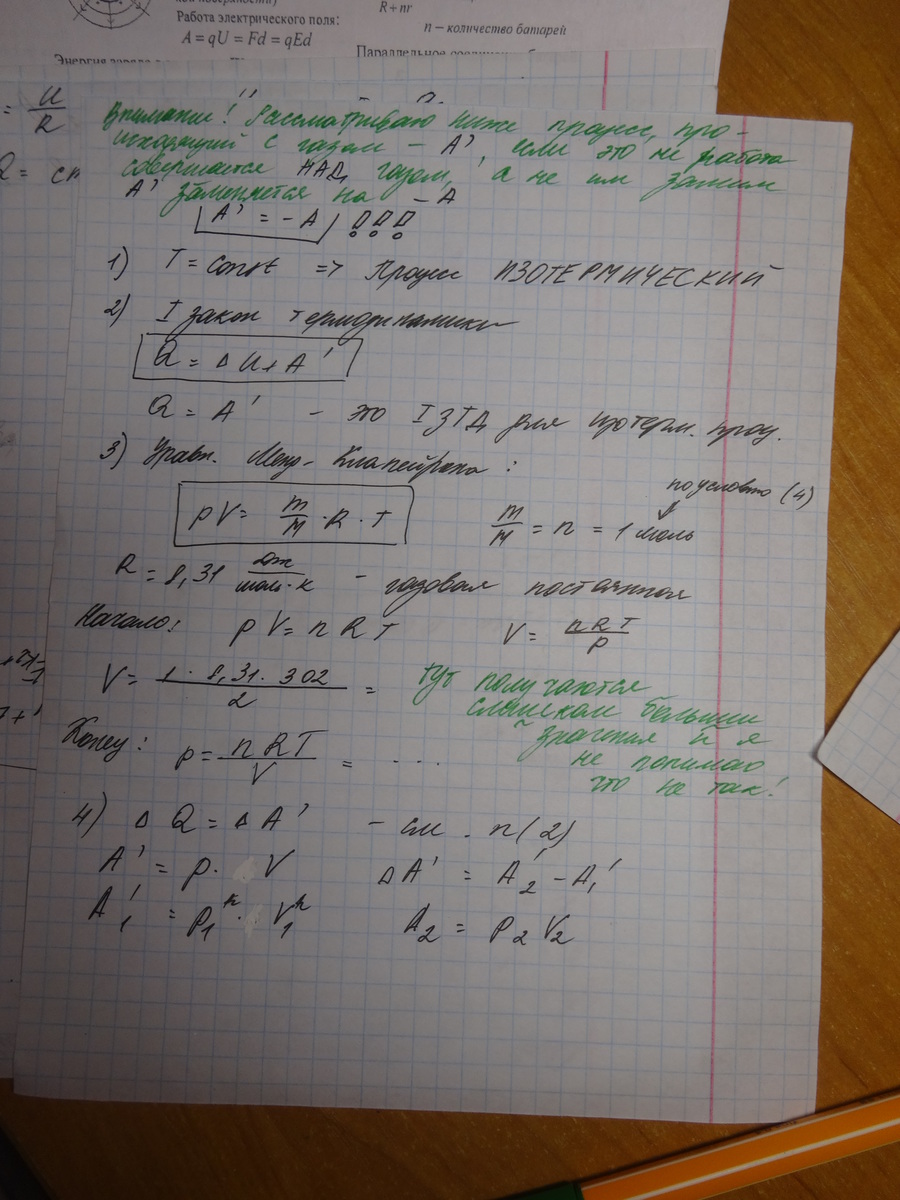 Работа электрического поля:
A = qU = Fd = qEd
R + nr
n – количество батарей
= U/R
Q =
Внимание! Рассматриваю ниже процесс, про-
исходящий с газом – A', если это не работа
совершается НАД газом, а не им
A' заменяется на – A
A' = -A !!!
1) T = const => Процесс ИЗОТЕРМИЧЕСКИЙ
2) I закон термодинамики
Q = ΔU + A'
Q = A' – это I ЗТД для изотерм. проц.
3) Уравн. Менд-Клапейрона:
по условию (4)
pV = m/M · R · T
m/M = n = 1 моль
R = 8,31 Дж/моль·К – газовая постоянная
Начало: pV = nRT V = nRT/p
V = 1 · 8,31 · 302/2 = тут получаются
слишком большие
значения и я
не понимаю
что не так!
Конец: p = nRT/V = . . .
4) ΔQ = ΔA' – см. п(2)
A' = p · V ΔA' = A'₂ – A'₁
A'₁ = p₁ · V₁ A₂ = p₂V₂